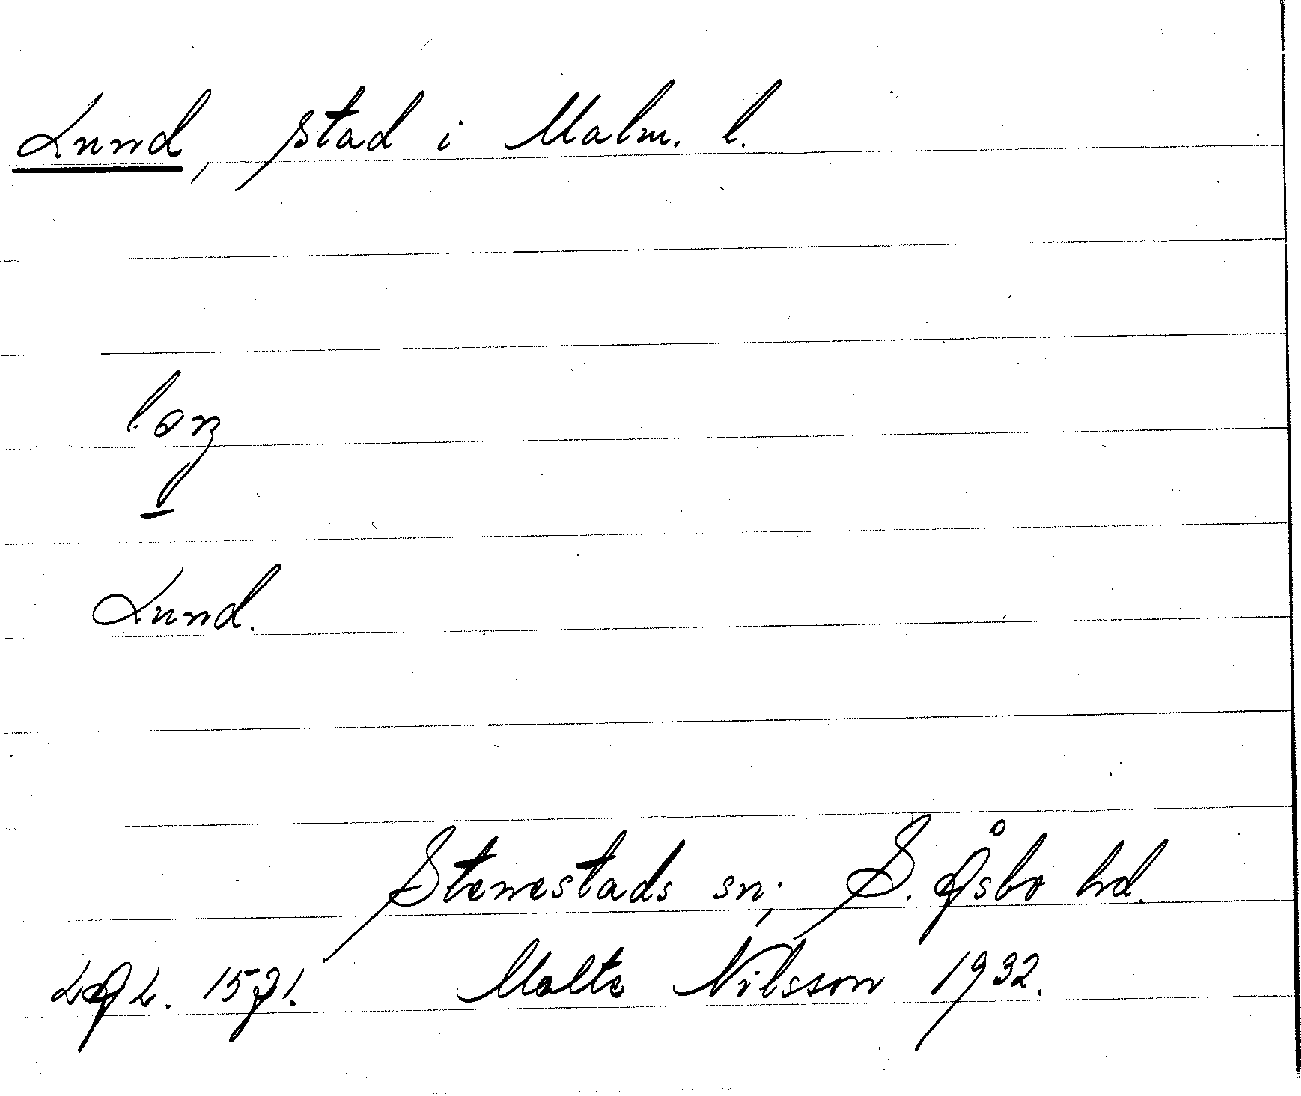 Lund, stad i Malm. l.
Lund.
Stenestads sn; S. Åsbo hd.
LAL. 1571. Malte Nilsson 1932.